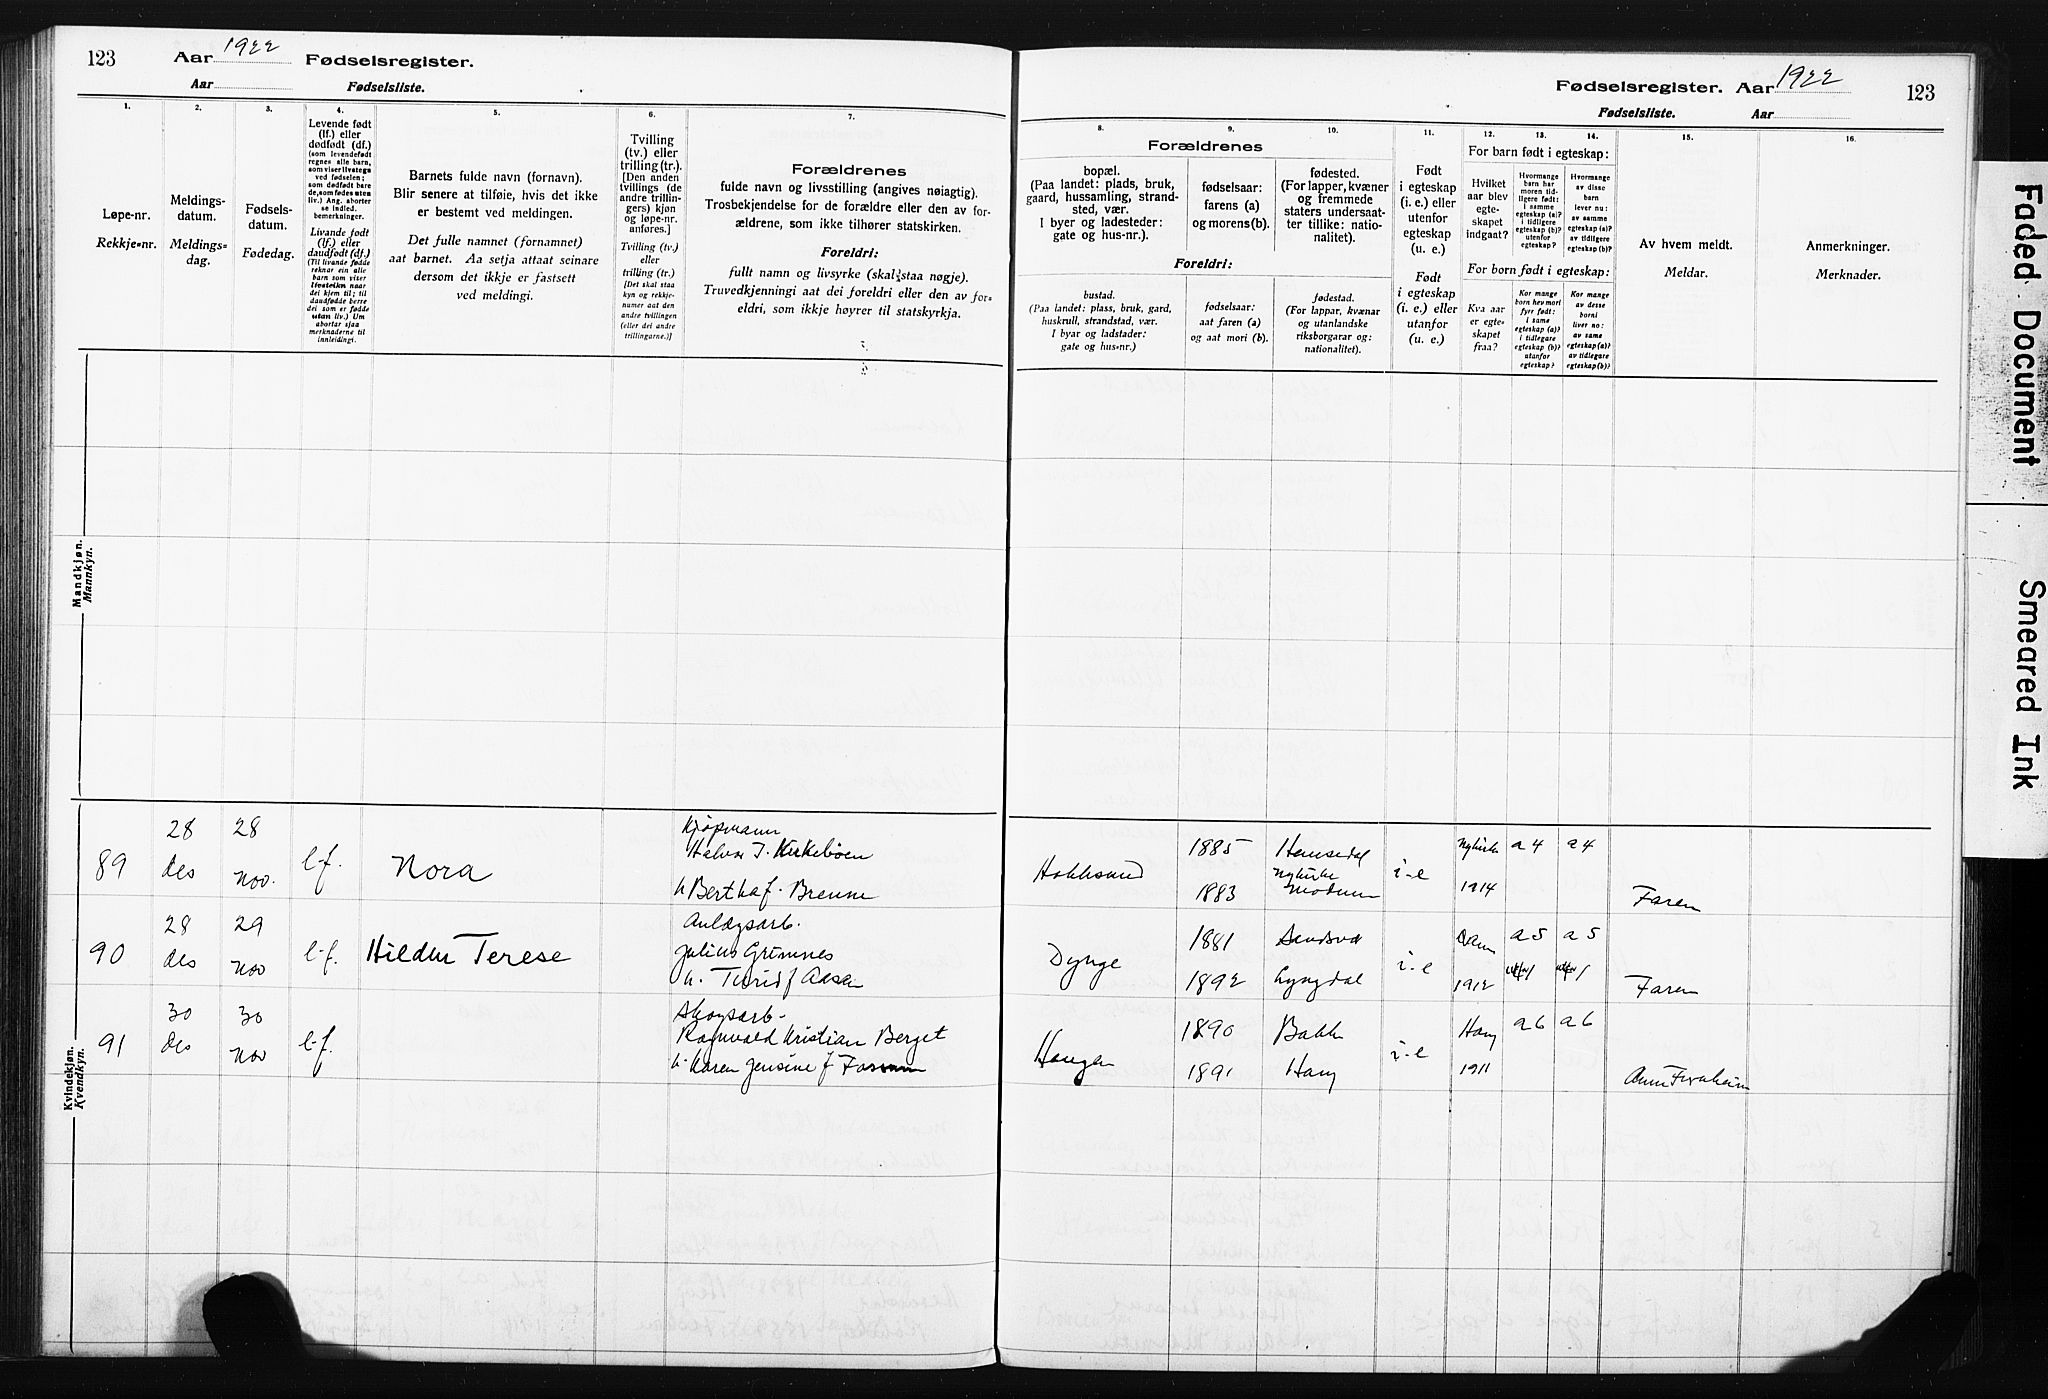 123
Aar 1922
Fødselsregister.
Aar
Fødselsliste.
1.
2.
3.
4.
5.
6.
7.
Løpe-nr.
Rekkje=nr.
Meldings-
datum.
Meldings=
dag.
Fødsels-
datum.
Fødedag.
Levende født
(lf.) eller
dødfødt (df.)
(som levendefødt
regnes alle barn,
som viser livstegn
ved fødselen;
som dødfødt bare
de, som fødes uten
liv.) Ang. aborter
se indled.
bemerkninger.
Livande født
(lf.) eller
daudfødt (df.)
(Til livande fødde
reknar ein alle
barn som viser
livsteikn naar
dei kjem til; til
daudfødde berre
dei som er fødde
utan liv.) Um
abortar sjaa
merknaderne til
innleidingi.
Barnets fulde navn (fornavn).
Blir senere at tilføie, hvis det ikke
er bestemt ved meldingen.
Det fulle namnet (fornamnet)
aat barnet. Aa setja attaat seinare
dersom det ikkje er fastsett
ved meldingi.
Tvilling
(tv.) eller
trilling (tr.).
[Den anden
tvillings (de
andre trillin-
gers) kjøn
og løpe-nr.
anføres.]
Tvilling (tv.)
eller
trilling (tr.)
[Det skal staa
kyn og rekkje-
numer aat den
andre tvillingen
(eller dei andre
trillingarne.)]
Forældrenes
fulde navn og livsstilling (angives nøiagtig).
Trosbekjendelse for de forældre eller den av for-
ældrene, som ikke tilhører statskirken.
Foreldri:
fullt namn og livsyrke (skal staa nøgje).
Truvedkjenningi aat dei foreldri eller den av for=
eldri, som ikkje høyrer til statskyrkja.
Mandkjøn.
Mannkyn.
89
28
des
28
nov.
l-f.
Nora
Kjøpmann
Halvor T. Kirkebøen
h Bertha f. Brenne
90
28
des
29
nov
l-f.
Terese
Anlægsarb.
Julius Grimnes
h. Turid f Aasen
91
30
des
30
nov
l-f.
Skogsarb.
Ragnvald Kristian Berget
h. Karen Jensine f
Kvindekjøn.
Kvendkyn.
Fødselsregister. Aar 1922
123
Fødselsliste.
Aar
8.
9.
10.
11.
12.
13.
14.
15.
16.
Forældrenes
bopæl.
(Paa landet: plads, bruk,
gaard, hussamling, strand-
sted, vær.
I byer og ladesteder:
gate og hus-nr.).
fødselsaar:
farens (a)
og morens (b).
fødested.
(For lapper, kvæner
og fremmede
staters undersaat-
ter tillike: natio-
nalitet).
Foreldri:
bustad.
(Paa landet: plass, bruk, gard,
huskrull, strandstad, vær.
I byar og ladstader:
gate og hus=nr.)
fødselsaar:
aat faren (a)
og aat mori (b).
fødestad.
(For lappar, kvænar
og utanlandske
riksborgarar og:
nationalitet).
Født
i egteskap
(i. e.) eller
utenfor
egteskap
(u. e.)
Født
i egteskap
(i. e.) eller
utanfor
(u. e.)
For barn født i egteskap:
Hvilket
aar blev
egte-
skapet
indgaat?
Hvormange
barn har
moren tid-
ligere født:
i samme
egteskap (a)?
i tidligere
egteskap (b)?
utenfor
egteskap?
Hvormange
av disse
barn
lever nu:
av samme
egteskap (a)?
av tidligere
egteskap (b)?
For born født i egteskap:
Kva aar
er egte-
skapet
fraa?
Kor mange
born hev mori
fyrr født:
i same
egteskap (a)?
i tidlegare
egteskap (b)?
utanfor
egteskap?
Kor mange
av desse
borni
liver no:
av same
egteskap (a)?
av tidlegare
egteskap (b)?
Av hvem meldt.
Meldar.
Anmerkninger.
Merknader.
Hokksund
1885
1883
Hemsedal
Nykirke
Modum
i-e
Nykirke
1914
a 4
a 4
Faren
Dynge
1881
1892
Sandsvær
Lyngdal
i-e
1912
a 5
a 5
Faren
Haugen
1890
1891
Bakke
Haug
i-e
Haug
1911
a 6
a 6
Faded Document
Smeared Ink